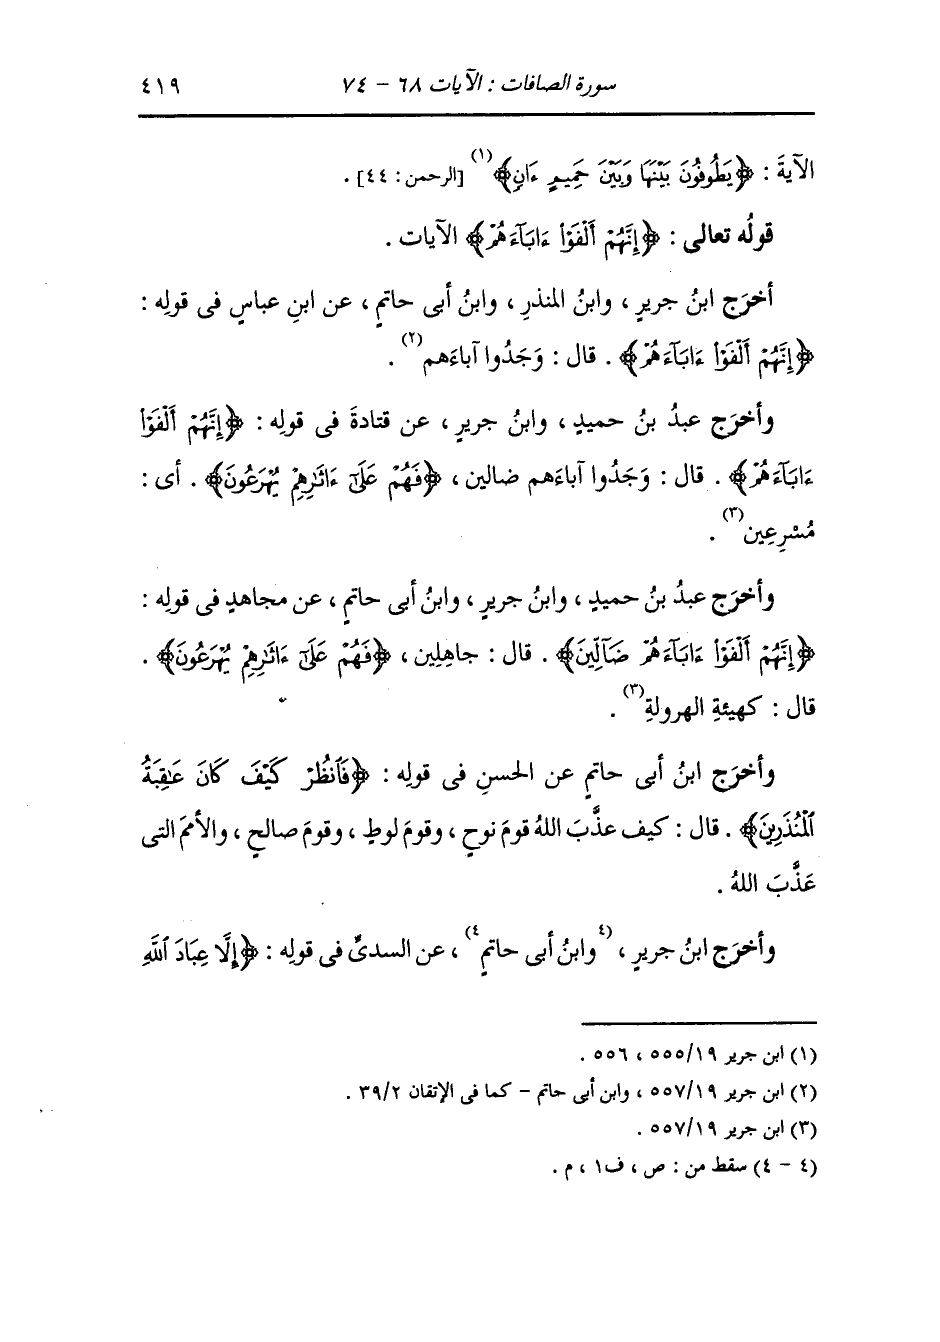 سورة الصافات : الآيات ٦٨ - ٧٤ ٤١٩
الآيةَ : ﴿يَطُوفُونَ بَيْنَهَا وَبَيْنَ حَمِيمٍ ءَانٍ﴾(١) [الرحمن: ٤٤] .
قولُه تعالى : ﴿إِنَّهُمْ أَلْفَوْا۟ ءَابَآءَهُمْ﴾ الآيات .
أخرَج ابنُ جريرٍ ، وابنُ المنذرِ ، وابنُ أبى حاتمٍ ، عن ابنِ عباسٍ فى قولِه :
﴿إِنَّهُمْ أَلْفَوْا۟ ءَابَآءَهُمْ﴾ . قال : وَجَدُوا آباءَهم(٢) .
وأخرَج عبدُ بنُ حميدٍ ، وابنُ جريرٍ ، عن قتادةَ فى قولِه : ﴿إِنَّهُمْ أَلْفَوْا۟
ءَابَآءَهُمْ﴾ . قال : وَجَدُوا آباءَهم ضالين ، ﴿فَهُمْ عَلَىٰٓ ءَاثَٰرِهِمْ يُهْرَعُونَ﴾ . أى :
مُسْرِعِين(٣) .
وأخرَج عبدُ بنُ حميدٍ ، وابنُ جريرٍ ، وابنُ أبى حاتمٍ ، عن مجاهدٍ فى قولِه :
﴿إِنَّهُمْ أَلْفَوْا۟ ءَابَآءَهُمْ ضَآلِّينَ﴾ . قال : جاهِلِين ، ﴿فَهُمْ عَلَىٰٓ ءَاثَٰرِهِمْ يُهْرَعُونَ﴾ .
قال : كهيئةِ الهرولةِ(٣) .
وأخرَج ابنُ أبى حاتمٍ عن الحسنِ فى قولِه : ﴿فَٱنظُرْ كَيْفَ كَانَ عَٰقِبَةُ
ٱلْمُنذَرِينَ﴾ . قال : كيف عذَّبَ اللهُ قومَ نوحٍ ، وقومَ لوطٍ ، وقومَ صالحٍ ، والأممَ التى
عَذَّبَ اللهُ .
وأخرَج ابنُ جريرٍ ، (٤وابنُ أبى حاتمٍ٤) ، عن السدىِّ فى قولِه : ﴿إِلَّا عِبَادَ ٱللَّهِ
(١) ابن جرير ٥٥٥/١٩ ، ٥٥٦ .
(٢) ابن جرير ٥٥٧/١٩ ، وابن أبى حاتم - كما فى الإتقان ٣٩/٢ .
(٣) ابن جرير ٥٥٧/١٩ .
(٤ - ٤) سقط من : ص ، ف١ ، م .